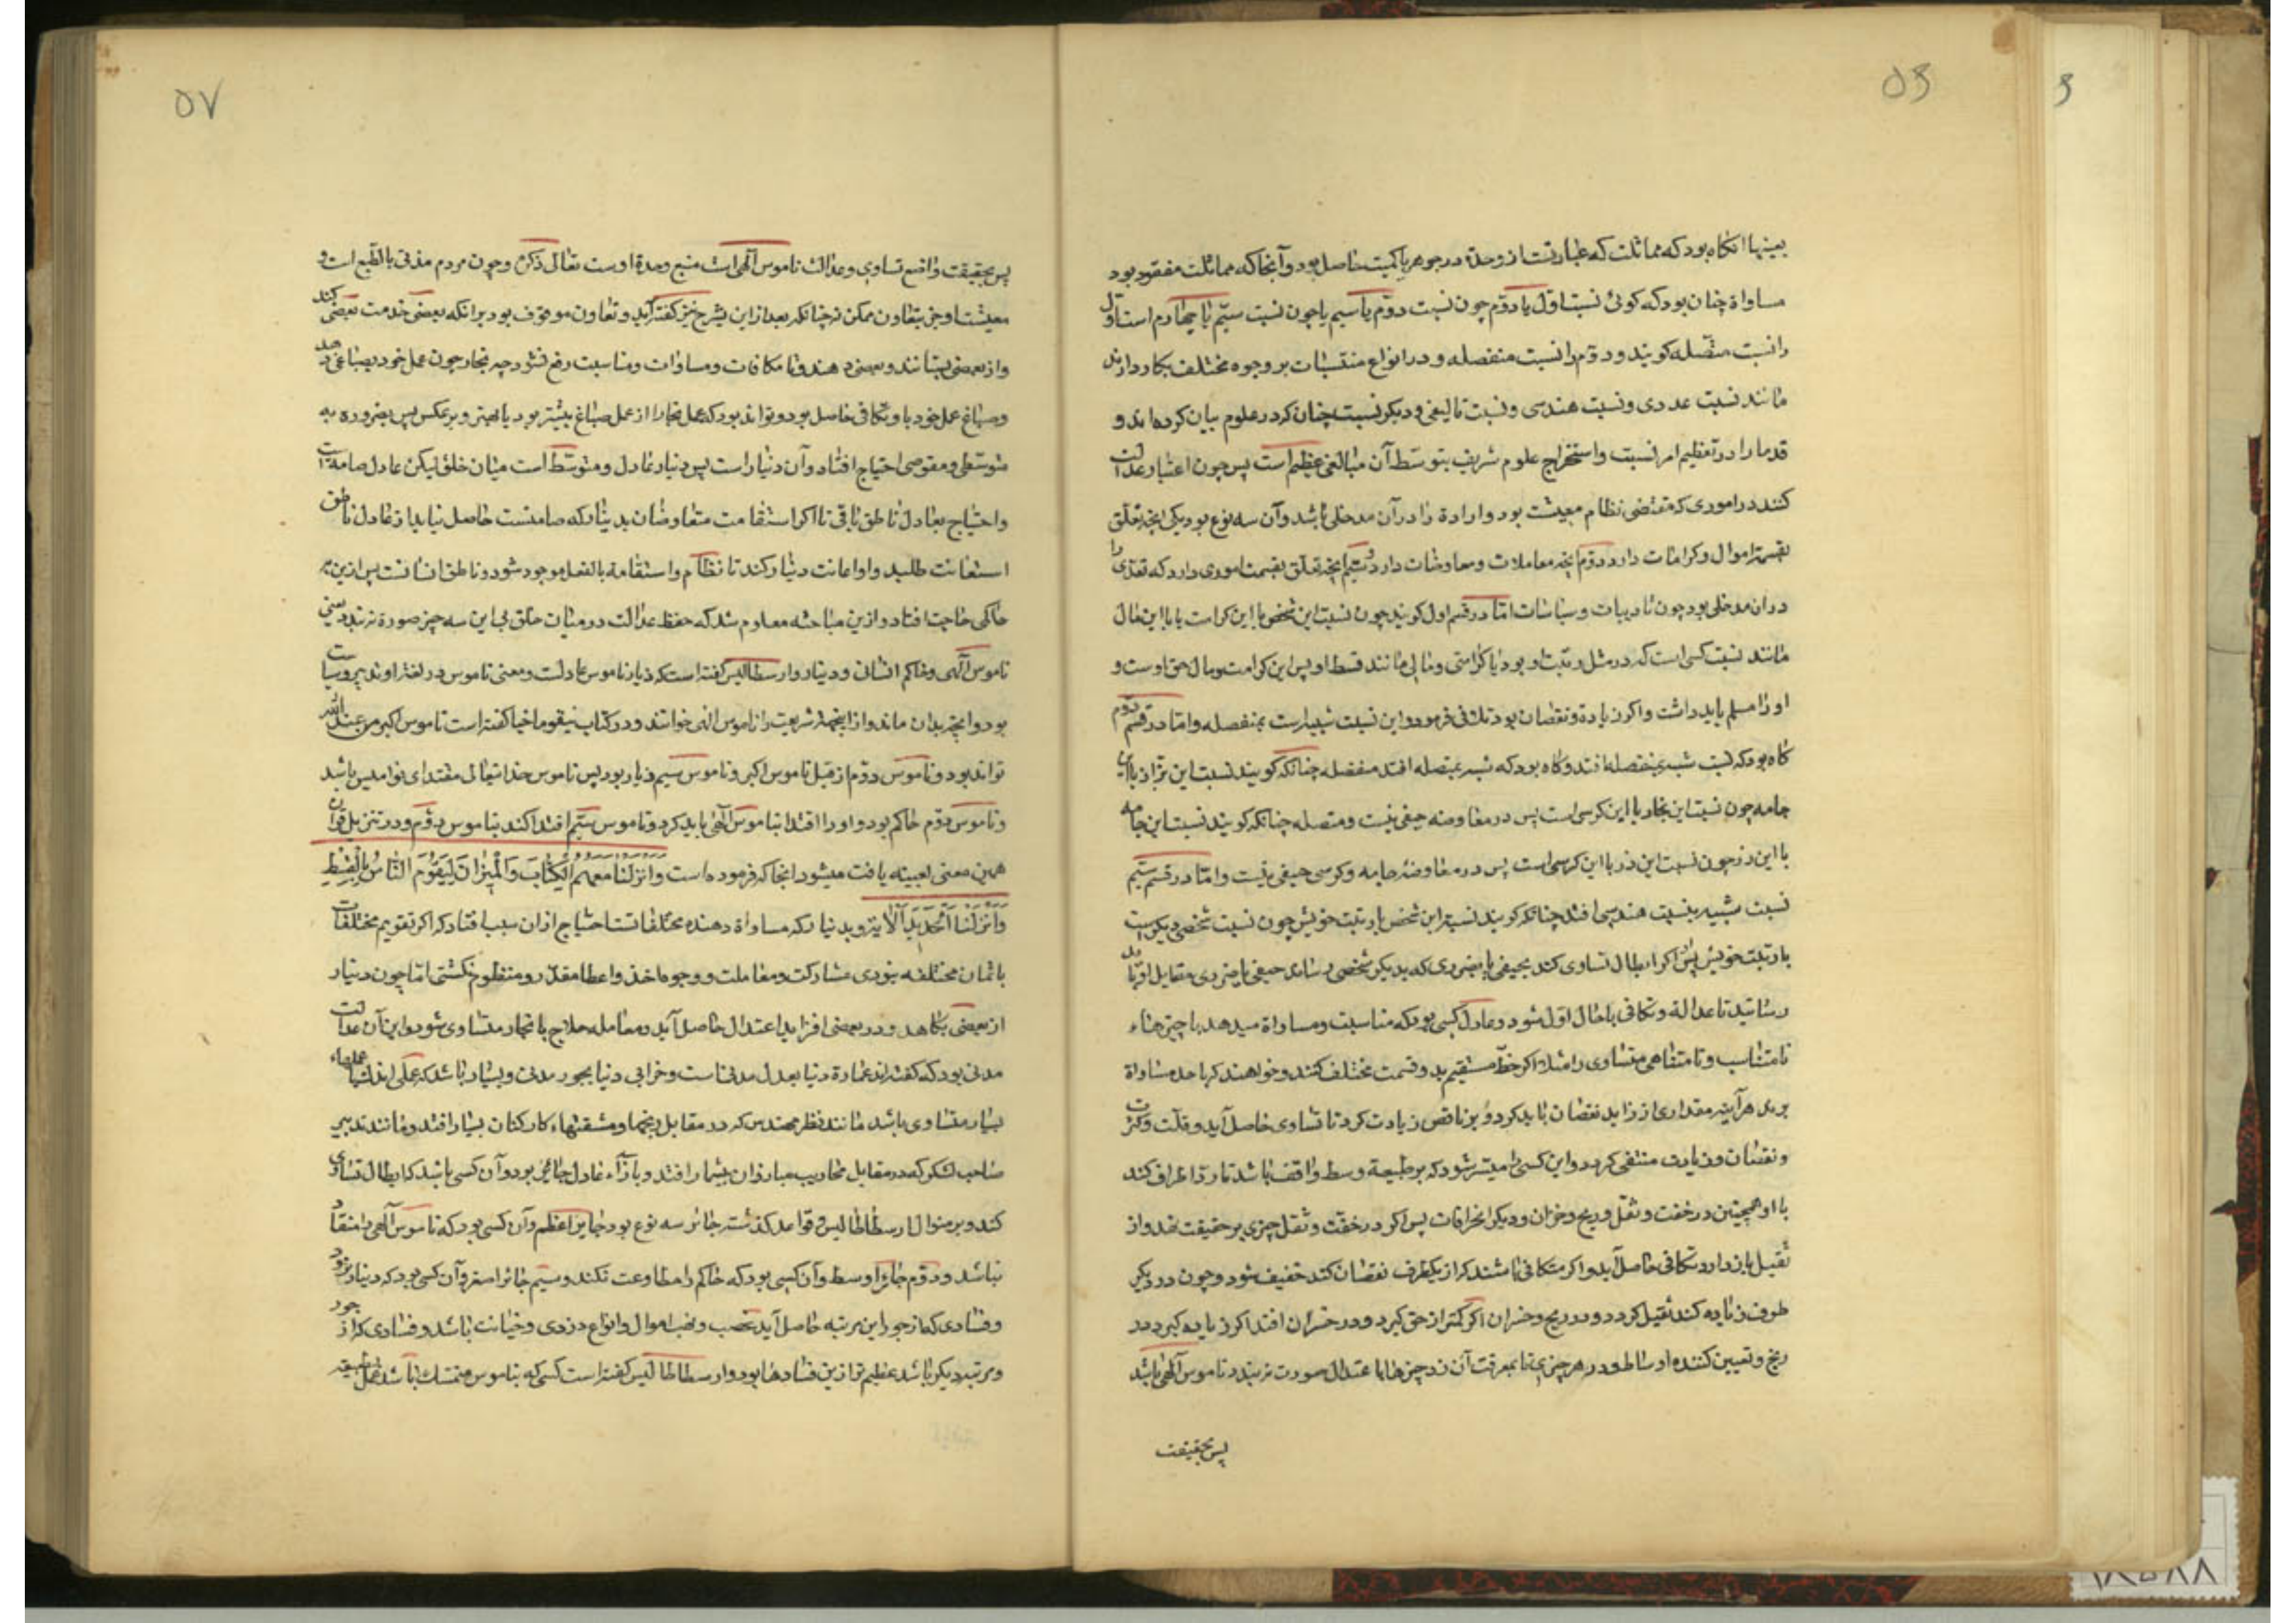 ۵۶
بعینها انکاه بود که مماثلت که عبارتست از وحدة در جوهر یا کمیت حاصل بود و آنجا که مماثلت مفقود بود
مساواة چنان بود که کوئی نسبت اول با دوّم چون نسبت دوّم با سیم یا چون نسبت سیّم با چهارم است اوّل
را نسبت متّصله کویند و دوّم را نسبت منفصله و در انواع منتسبات بر وجوه مختلف بکار دارند
مانند نسبت عددی و نسبت هندسی و نسبت تالیفی و دیکر نسبت چنان کر در علوم بیان کرده اند و
قدما را در تعظیم امر نسبت و استخراج علوم شریف بتوسّط آن مبالغی عظیم است پس چون اعتبار عدالت
کنند در اموری که مقتضی نظام معیشت بود و ارادة را در آن مدخلی باشد و آن سه نوع بود یکی انچه تعلّق
بقسمة اموال و کرامات دارد دوّم انچه معاملات و معاوضات دارد و سیّم انچه تعلّق بقسمت اموری دارد که تعدّی را
در ان مدخلی بود چون تادیبات و سیاسات امّا در قسم اول کویند چون نسبت این شخص با این کرامت یا با این مال
مانند نسبت کسی است که در مثل رتبت او بود با کرامتی و مالی مانند قسط او پس این کرامت و مال حق اوست و
او را مسلم باید داشت و اکر زیادة و نقصان بود تلافی فرمود و این نسبت شبیه است بمنفصله و امّا در قسم دوّم
کاه بود که نسبت شبیه بمنفصله افتد و کاه بود که شبیه بمتصله افتد منفصله چنانکه کویند نسبت این بزاز با این
جامه چون نسبت این نجار با این کرسی است پس در معاوضه حیفی نیست و متصله چنانکه کویند نسبت این جامه
با این زر چون نسبت این زر با این کرسی است پس در معاوضۀ جامه و کرسی حیفی نیست و امّا در قسم سیّم
نسبت شبیه بنسبت هندسی افتد چنانکه کویند نسبة این شخص با رتبت خویش چون نسبت شخصی دیکر است
با رتبت خویش پس اکر ابطال تساوی کند بحیفی یا بضرری که بدیکر شخصی رساند حیفی یا ضرری مقابل او باید
رسانید تا عدالة و تکافی با حال اوّل شود و عادل کسی بود که مناسبت و مساواة میدهد با چیزهاء
نامتناسب و نامتساوی را مثلا اکر خطّ مستقیم بدو قسمت مختلف کنند و خواهند که با حد مساواة
برند هر آینه مقداری از زاید نقصان باید کرد و بر ناقص زیادت کرد تا تساوی حاصل آید و قلّت و کثرت
و نقصان و زیادت منتفی کردد و این کسی را میسّر شود که بر طبیعة وسط واقف باشد تا ردّ اطراف کند
با او همچنین در خفت و ثقل و ربح و خسران و دیکر انحرافات پس اکر در خفّت و ثقل چیزی بر خفیف نهد و از
ثقیل باز دارد تکافی حاصل آید و اکر متکافی باشند کر از یکطرف نقصان کند خفیف شود و چون در دیکر
طرف زیاده کند ثقیل کردد و در ربح و خسران اکر کمتر از حق کیرد در خسران افتد اکر زیاده کیرد در
ربح و تعیین کننده اوساط در هر چیزی تا بمعرفت آن ردّ چیزها با اعتدال صورت بندد ناموس آلهی باشد
پس بحقیقت
۵۷
پس بحقیقت واضع تساوی و عدالت ناموس آلهی است منبع وحدة اوست تعالی ذکره و چون مردم مدنی بالطّبع است و
معیشت او جز بتعاون ممکن نه چنانکه بعد از این بشرح خیز کفته آید و تعاون موقوف بود برانکه بعضی خدمت بعضی کنند
و از بعضی بستانند و بعضی دهند و تا مکافات و مساوات و مناسبت رفع نشود چه نجار چون عمل خود بصبّاغ دهد
و صباغ عمل خود باو تکافی حاصل بود و تواند بود که عمل نجار از عمل صباغ بیشتر بود یا بهتر و بر عکس پس بضرورة به
متوسّطی و مقومی احتیاج افتاد و آن دینار است پس دینار عادل و متوسّط است میان خلق لیکن عادل صامت است
و احتیاج بعادل ناطق باقی تا اکر استقامت متعاوضان بدینار که صامتست حاصل نیاید از عادل ناطق
استعانت طلبند و او اعانت دینار کند تا نظام و استقامة بالفعل موجود شود و ناطق انسانست پس ازین به
حاکمی حاجت افتاد و ازین مباحثه معلوم شد که حفظ عدالت در میان خلق بی این سه چیز صورة نه بندد یعنی
ناموس آلهی و حاکم انسان و دینار و ارسطاطالیس کفته است که دینار ناموس عادلست و معنی ناموس در لغة او تدبیر و سیاست
بود و انچه بدان ماند و از اینجهة شریعت را ناموس الهی خوانند و در کتاب نیقوماخیا کفته است ناموس اکبر من عند الله
تواند بود و ناموس دوّم از قبل ناموس اکبر و ناموس سیم دینار بود پس ناموس خدا تعالی مقتدای نوامیس باشد
و ناموس دوّم حاکم بود و او را اقتدا بناموس آلهی باید کرد و ناموس سیّم اقتدا کند بناموس دوّم و در تنزیل قرآن
همین معنی بعینه یافت میشود انجا که فرموده است وَاَنْزَلْنَا مَعَهُمُ الْکِتَابَ وَالْمِیزَانَ لِیَقُومَ النَّاسُ بِالْقِسْطِ
وَاَنْزَلْنَا الْحَدِیدَ اَلْآیة و بدینار که مساواة دهنده مختلفاتست احتیاج از ان سبب افتاد که اکر تقویم مختلفات
باثمان مختلفه نبودی مشارکت و معاملت و وجوه اخذ و اعطا مقدّر و منظوم نکشتی امّا چون دینار
از بعضی بکاهد و در بعضی افزاید اعتدال حاصل آید و معامله فلاح با نجار متساوی شود و این آن عدالت
مدنی بود که کفته اند عمارة دنیا بعدل مدنی است و خرابی دنیا بجور مدنی و بسیار باشد که عملی اندک با عملهاء
بسیار متساوی باشد مانند نظر مهندس که در مقابل رنجها و مشقتهاء کارکنان بسیار افتد و مانند تدبیر
صاحب لشکر که در مقابل محاربت مبارزان بیشمار افتد و بازاء عادل جائر بود و آن کسی باشد که ابطال تساوی
کند و بر منوال ارسطاطالیس و قواعد کذشته جائر سه نوع بود جایر اعظم و آن کسی بود که ناموس آلهی را منقاد
نباشد و دوّم جایر اوسط و آن کسی بود که حاکم را مطاوعت نکند و سیّم جائر اصغر و آن کسی بود که دینار نرود
و فسادی که از جور این مرتبه حاصل آید غصب و نهب اموال و انواع دزدی و خیانت باشد و فسادی که از جور
دو مرتبه دیکر باشد عظیم تر ازین فسادها بود و ارسطاطالیس کفته است کسی که بناموس متمسّک باشد عمل